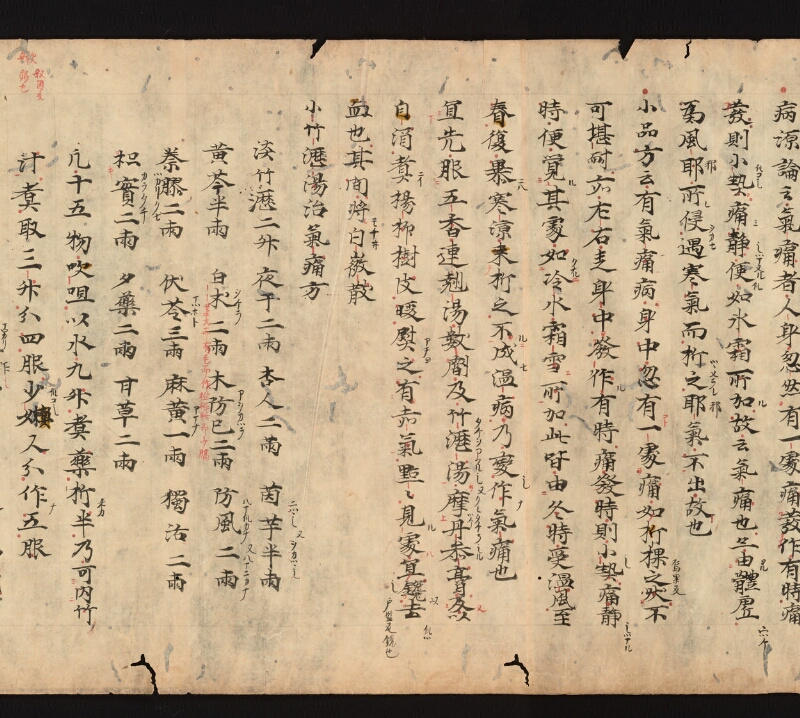 病源論云氣痛者人身忽然有一處痛發作有時痛
發則小熱痛靜便如水霜所加故云氣痛也亦由體虛
為風耶所侵遇寒氣而折之耶氣不出故也
小品方云有氣痛病身中忽有一處痛如打棵之狀不
可堪耐亦左右走身中發作有時痛發時則小熱痛靜
時便覺其處如冷水霜雪所加此皆由冬時受溫風至
春復暴寒涼來折之不成溫病乃變作氣痛也
宜先服五香連翹湯數劑及竹瀝湯摩丹參膏又以
白酒煮楊柳樹皮暖熨之有赤氣點々見處宜鑱去
血也其間將白薇散
小竹瀝湯治氣痛方
淡竹瀝二升 夜干二兩 杏人二兩 茵芋半兩
黃芩半兩 白朮二兩 木防已二兩 防風二兩
秦膠二兩 伏苓三兩 麻黃一兩 獨活二兩
枳實二兩 夕藥二兩 甘草二兩
凡十五物㕮咀以水九升煮藥折半乃可內竹
汁煮取三升分四服少嫂人分作五服